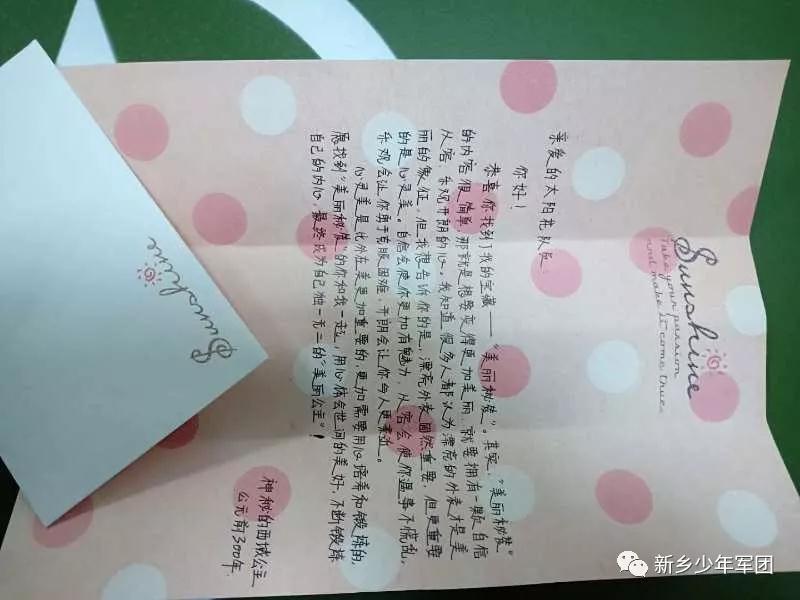 Sunshine
Take your passion
and make it come true.
亲爱的太阳花队员:
你好!
恭喜你找到了我的宝藏——“美丽秘笈”。其实,“美丽秘笈”
的内容很简单,那就是想要变得更加美丽,就要拥有一颗自信
从容、乐观开朗的心。我知道,很多人都认为漂亮的外表才是美
丽的象征,但我想告诉你的是,漂亮外表固然重要,但更重要
的是心灵美。自信会使你更加有魅力,从容会使你遇事不慌乱,
乐观会让你勇于克服困难,开朗会让你与人更亲近。
心灵美是比外在美更加重要的,更加需要用心培养和锻炼的,
愿找到“美丽秘笈”的你和我一起,用心体会世间的美好,不断锻炼
自己的内心,最终成为自己独一无二的“美丽公主”!
神秘的西域公主
公元前300年.
Sunshine
新乡少年军团